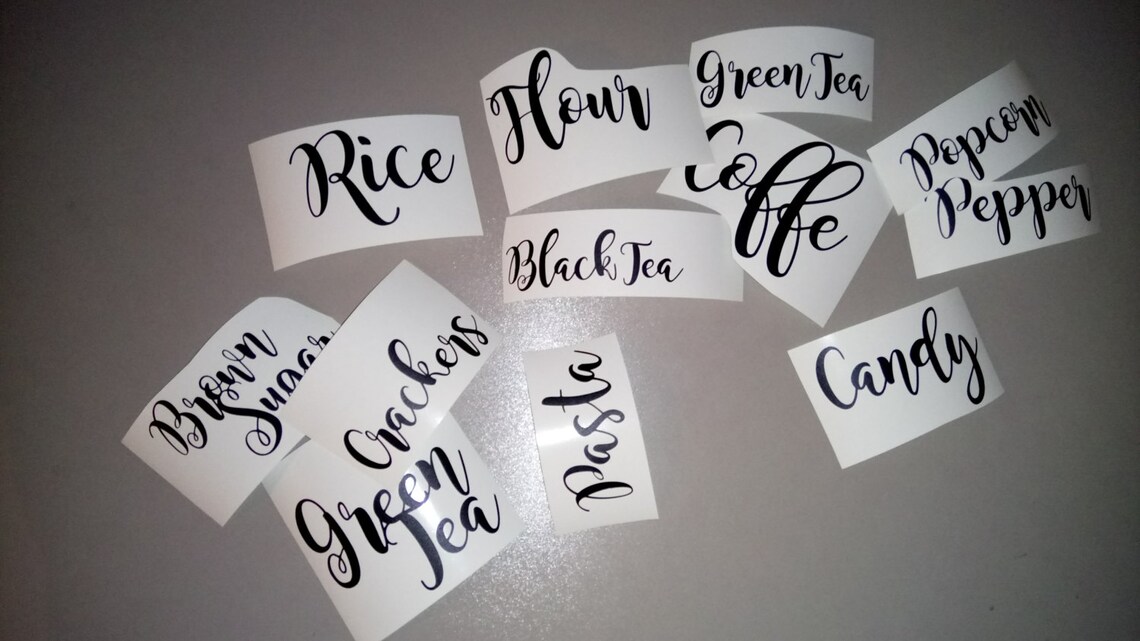 Flour
Green Tea
Rice
Coffe
Popcorn
Pepper
Black Tea
Brown
Sugar
Crackers
Pasta
Candy
Green
Tea